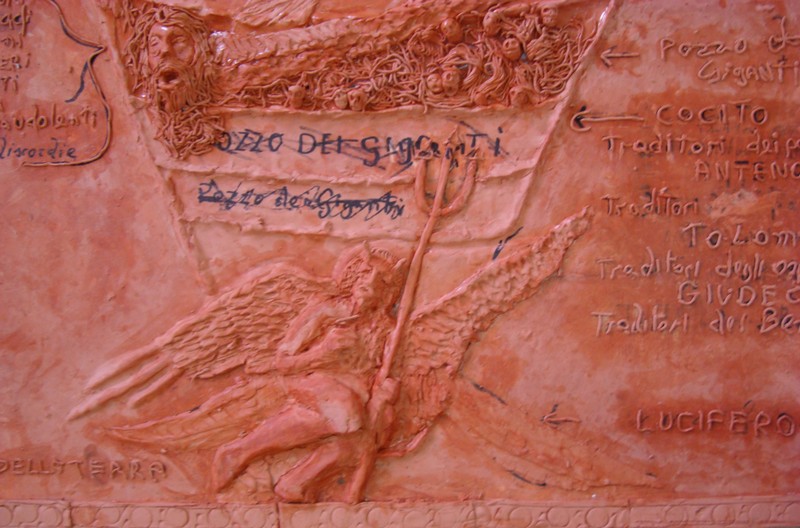 ERI
TI
Discordie
POZZO DEI GigantI
Pozzo dei Giganti
Pozzo
Giganti
COCITO
Traditori dei
ANTENO
Traditori
TOLOM
Traditori degli
GIUDEC
Traditori dei Be
LUCIFERO
DELLA TERRA